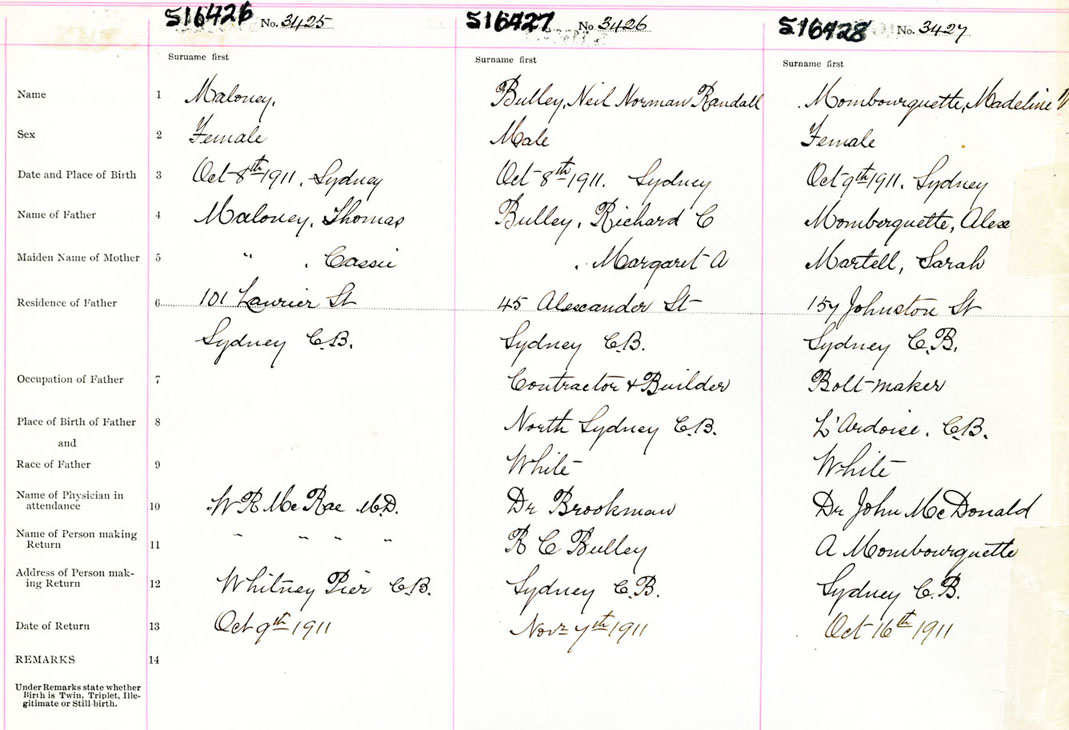 516426 No. 3425 516427 No 3426 516428 No. 3427
Surname first Surname first Surname first
Name 1 Maloney, Bulley, Neil Norman Randall Mombourquette, Madeline
Sex 2 Female Male Female
Date and Place of Birth 3 Oct 8th 1911, Sydney Oct 8th 1911. Sydney Oct 9th 1911. Sydney
Name of Father 4 Maloney, Thomas Bulley, Richard C Momberquette, Alex
Maiden Name of Mother 5 " , Cassie , Margaret A Martell, Sarah
Residence of Father 6 101 Laurier St 45 Alexander St 157 Johnston St
Sydney C.B. Sydney C.B. Sydney C.B.
Occupation of Father 7 Contractor & Builder Bolt-maker
Place of Birth of Father 8 North Sydney C.B. L'Ardoise. C.B.
and
Race of Father 9 White White
Name of Physician in
attendance 10 W R McRae M.D. Dr Brookman Dr John McDonald
Name of Person making
Return 11 " " " " R C Bulley A Mombourquette
Address of Person mak-
ing Return 12 Whitney Pier C.B. Sydney C.B. Sydney C.B.
Date of Return 13 Oct 9th 1911 Nov 7th 1911 Oct 16th 1911
REMARKS 14
Under Remarks state whether
Birth is Twin, Triplet, Ille-
gitimate or Still-birth.